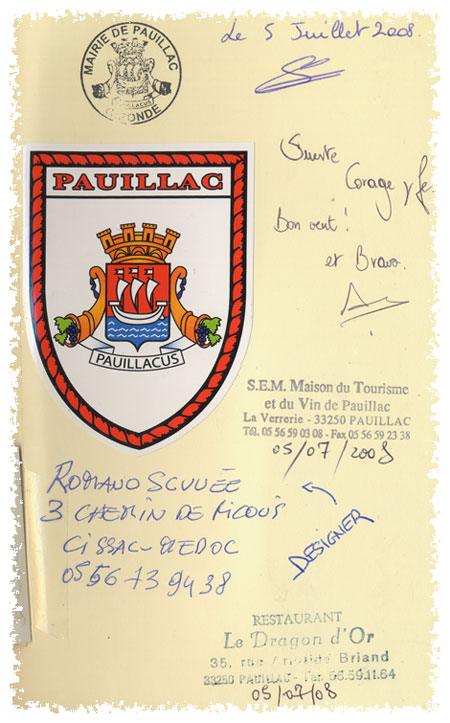 MAIRIE DE PAUILLAC
PAUILLACUS
GIRONDE
Le 5 Juillet 2008.
Suerte
Corage y fe
Bon vent!
et Bravo.
PAUILLAC
PAUILLACUS
S.E.M. Maison du Tourisme
et du Vin de Pauillac
La Verrerie - 33250 PAUILLAC
Tél. 05 56 59 03 08 - Fax 05 56 59 23 38
05/07/2008
ROMANO
3 CHEMIN DE
CISSAC-MEDOC
05 56 73 94 38
DESIGNER
RESTAURANT
Le Dragon d'Or
35, rue Aristide Briand
33250 PAUILLAC - 56.59.11.64
05/07/08